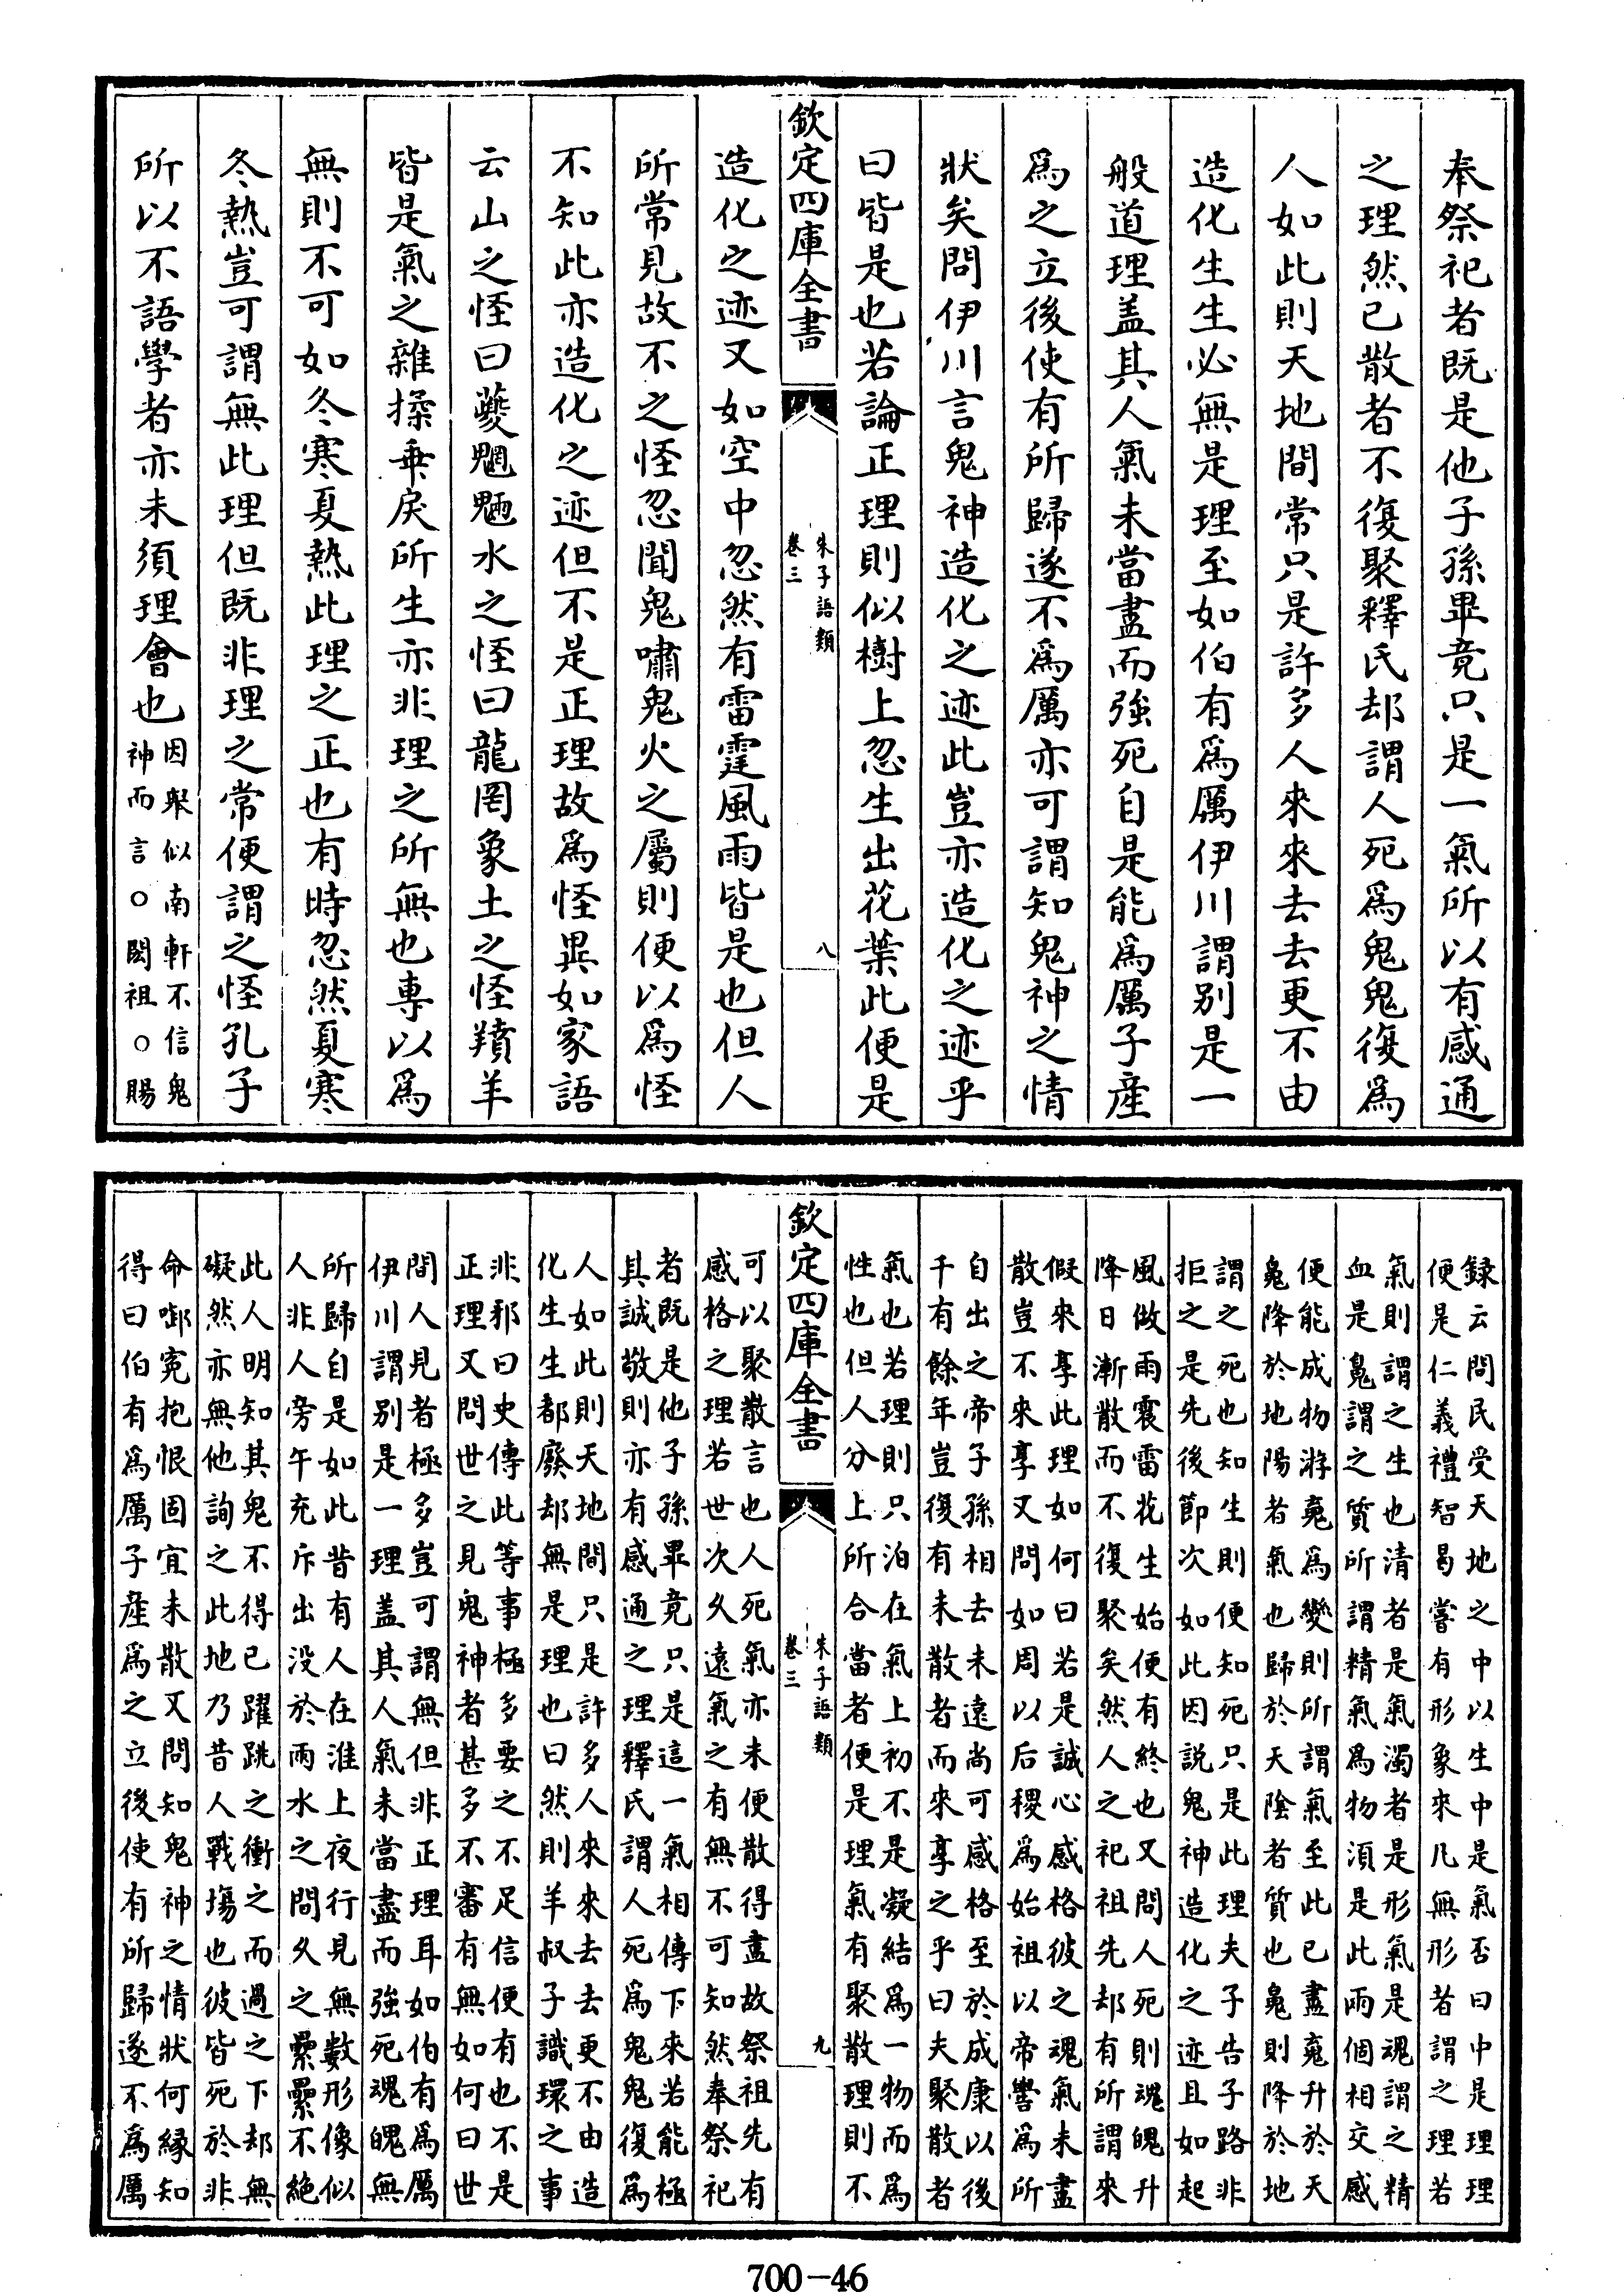 奉祭祀者既是他子孫畢竟只是一氣所以有感通
之理然已散者不復聚釋氏却謂人死爲鬼鬼復爲
人如此則天地間常只是許多人來來去去更不由
造化生生必無是理至如伯有爲厲伊川謂别是一
般道理盖其人氣未當盡而強死自是能爲厲子產
爲之立後使有所歸遂不爲厲亦可謂知鬼神之情
狀矣問伊川言鬼神造化之迹此豈亦造化之迹乎
曰皆是也若論正理則似樹上忽生出花葉此便是
欽定四庫全書
朱子語類
卷三
八
造化之迹又如空中忽然有雷霆風雨皆是也但人
所常見故不之怪忽聞鬼嘯鬼火之屬則便以爲怪
不知此亦造化之迹但不是正理故爲怪異如家語
云山之怪曰夔魍魎水之怪曰龍罔象土之怪羵羊
皆是氣之雜揉乖戾所生亦非理之所無也專以爲
無則不可如冬寒夏熱此理之正也有時忽然夏寒
冬熱豈可謂無此理但既非理之常便謂之怪孔子
所以不語學者亦未須理會也
因舉似南軒不信鬼
神而言○閎祖○賜
録云問民受天地之中以生中是氣否曰中是理理
便是仁義禮智曷嘗有形象來凡無形者謂之理若
氣則謂之生也清者是氣濁者是形氣是魂謂之精
血是鬼謂之質所謂精氣爲物湏是此兩個相交感
便能成物游䰟爲變則所謂氣至此已盡䰟升於天
鬼降於地陽者氣也歸於天陰者質也鬼則降於地
謂之死也知生則便知死只是此理夫子告子路非
拒之是先後節次如此因説鬼神造化之迹且如起
風做雨震雷花生始便有終也又問人死則魂魄升
降日漸散而不復聚矣然人之祀祖先却有所謂來
假來享此理如何曰若是誠心感格彼之魂氣未盡
散豈不來享又問如周以后稷爲始祖以帝嚳爲所
自出之帝子孫相去未遠尚可感格至於成康以後
千有餘年豈復有未散者而來享之乎曰夫聚散者
氣也若理則只泊在氣上初不是凝結爲一物而爲
性也但人分上所合當者便是理氣有聚散理則不
欽定四庫全書
朱子語類
卷三
九
可以聚散言也人死氣亦未便散得盡故祭祖先有
感格之理若世次久遠氣之有無不可知然奉祭祀
者既是他子孫畢竟只是這一氣相傳下來若能極
其誠敬則亦有感通之理釋氏謂人死爲鬼鬼復爲
人如此則天地間只是許多人來來去去更不由造
化生生都廢却無是理也曰然則羊叔子識環之事
非邪曰史傳此等事極多要之不足信便有也不是
正理又問世之見鬼神者甚多不審有無如何曰世
間人見者極多豈可謂無但非正理耳如伯有爲厲
伊川謂别是一理盖其人氣未當盡而強死魂魄無
所歸自是如此昔有人在淮上夜行見無數形像似
人非人旁午充斥出没於兩水之間久之纍纍不絶
此人明知其鬼不得已躍跳之衝之而過之下却無
礙然亦無他詢之此地乃昔人戰塲也彼皆死於非
命啣寃抱恨固宜未散又問知鬼神之情狀何縁知
得曰伯有爲厲子產爲之立後使有所歸遂不爲厲
700-46